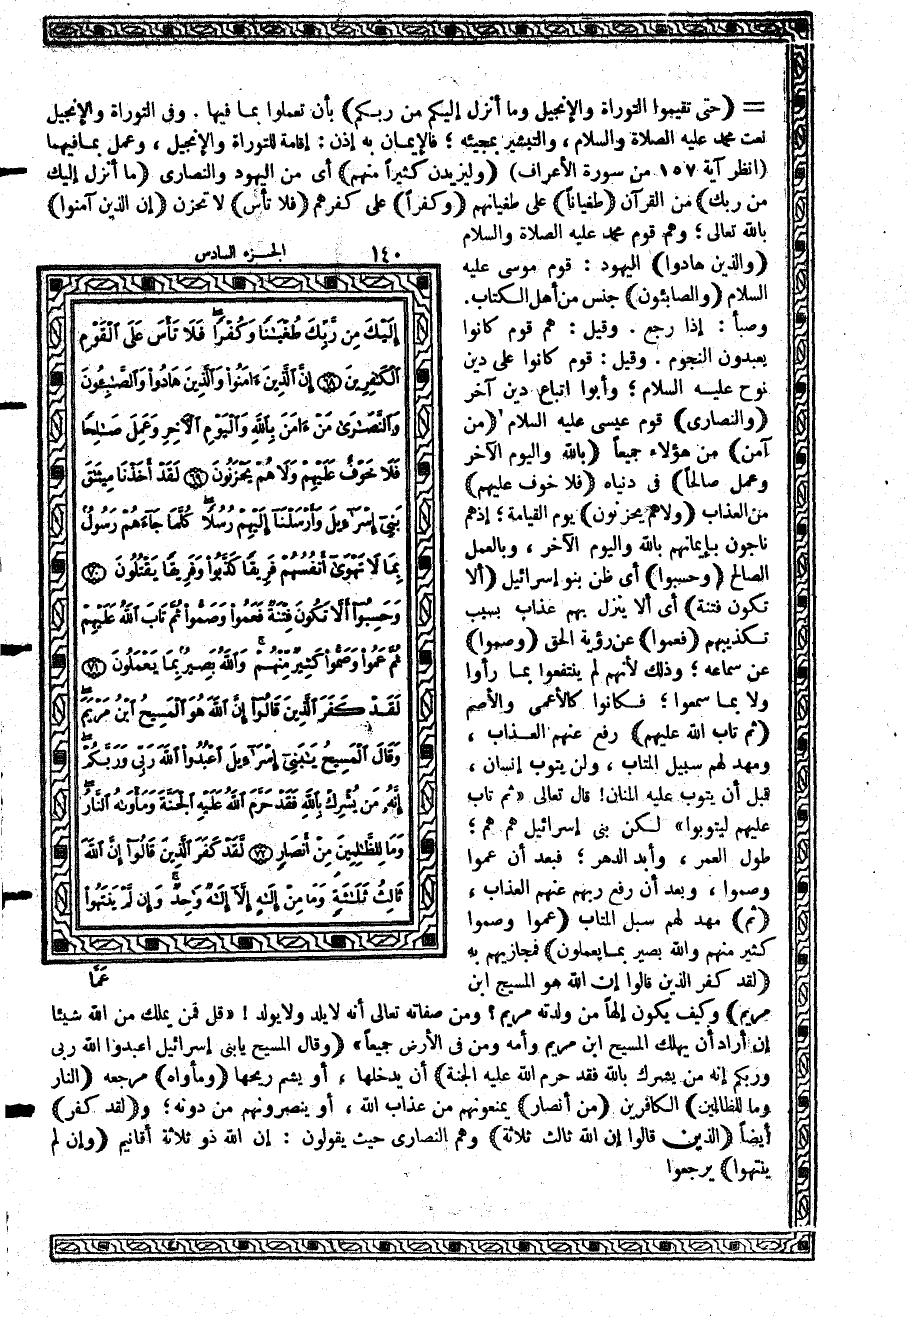 = (حتى تقيموا التوراة والإنجيل وما أنزل إليكم من ربكم) بأن تعملوا بما فيها . وفى التوراة والإنجيل
نعت محمد عليه الصلاة والسلام ، والتبشير بمجيئه ؛ فالإيمان به إذن : إقامة للتوراة والإنجيل ، وعمل بما فيهما
(انظر آية ١٥٧ من سورة الأعراف) (وليزيدن كثيراً منهم) أى من اليهود والنصارى (ما أنزل إليك
من ربك) من القرآن (طغياناً) على طغيانهم (وكفراً) على كفرهم (فلا تأس) لا تحزن (إن الذين آمنوا)
بالله تعالى ؛ وهم قوم محمد عليه الصلاة والسلام
(والذين هادوا) اليهود : قوم موسى عليه
السلام (والصابئون) جنس من أهل الكتاب .
وصبأ : إذا رجع . وقيل : هم قوم كانوا
يعبدون النجوم . وقيل : قوم كانوا على دين
نوح عليه السلام ؛ وأبوا اتباع دين آخر
(والنصارى) قوم عيسى عليه السلام (من
آمن) من هؤلاء جميعاً (بالله واليوم الآخر
وعمل صالحاً) فى دنياه (فلا خوف عليهم)
من العذاب (ولاهم يحزنون) يوم القيامة ؛ إذهم
ناجون بإيمانهم بالله واليوم الآخر ، وبالعمل
الصالح (وحسبوا) أى ظن بنو إسرائيل (ألا
تكون فتنة) أى ألا ينزل بهم عذاب بسبب
تكذيبهم (فعموا) عن رؤية الحق (وصموا)
عن سماعه ؛ وذلك لأنهم لم ينتفعوا بما رأوا
ولا بما سمعوا ؛ فكانوا كالأعمى والأصم
(ثم تاب الله عليهم) رفع عنهم العذاب ،
ومهد لهم سبيل المتاب ، ولن يتوب إنسان ،
قبل أن يتوب عليه المنان ! قال تعالى «ثم تاب
عليهم ليتوبوا» لكن بنى إسرائيل هم هم ؛
طول العمر ، وأبد الدهر ؛ فبعد أن عموا
وصموا ، وبعد أن رفع ربهم عنهم العذاب ،
(ثم) مهد لهم سبل المتاب (عموا وصموا
كثير منهم والله بصير بما يعملون) فمجازيهم به
(لقد كفر الذين قالوا إن الله هو المسيح ابن
١٤٠ الجزء السادس
إِلَيْكَ مِن رَّبِّكَ طُغْيَـٰنًا وَكُفْرًا ۖ فَلَا تَأْسَ عَلَى ٱلْقَوْمِ
ٱلْكَـٰفِرِينَ ٦٨ إِنَّ ٱلَّذِينَ ءَامَنُوا۟ وَٱلَّذِينَ هَادُوا۟ وَٱلصَّـٰبِـُٔونَ
وَٱلنَّصَـٰرَىٰ مَنْ ءَامَنَ بِٱللَّهِ وَٱلْيَوْمِ ٱلْـَٔاخِرِ وَعَمِلَ صَـٰلِحًا
فَلَا خَوْفٌ عَلَيْهِمْ وَلَا هُمْ يَحْزَنُونَ ٦٩ لَقَدْ أَخَذْنَا مِيثَـٰقَ
بَنِىٓ إِسْرَٰٓءِيلَ وَأَرْسَلْنَآ إِلَيْهِمْ رُسُلًا ۖ كُلَّمَا جَآءَهُمْ رَسُولٌۢ
بِمَا لَا تَهْوَىٰٓ أَنفُسُهُمْ فَرِيقًا كَذَّبُوا۟ وَفَرِيقًا يَقْتُلُونَ ٧٠
وَحَسِبُوٓا۟ أَلَّا تَكُونَ فِتْنَةٌ فَعَمُوا۟ وَصَمُّوا۟ ثُمَّ تَابَ ٱللَّهُ عَلَيْهِمْ
ثُمَّ عَمُوا۟ وَصَمُّوا۟ كَثِيرٌ مِّنْهُمْ ۚ وَٱللَّهُ بَصِيرٌۢ بِمَا يَعْمَلُونَ ٧١
لَقَدْ كَفَرَ ٱلَّذِينَ قَالُوٓا۟ إِنَّ ٱللَّهَ هُوَ ٱلْمَسِيحُ ٱبْنُ مَرْيَمَ ۖ
وَقَالَ ٱلْمَسِيحُ يَـٰبَنِىٓ إِسْرَٰٓءِيلَ ٱعْبُدُوا۟ ٱللَّهَ رَبِّى وَرَبَّكُمْ ۖ
إِنَّهُۥ مَن يُشْرِكْ بِٱللَّهِ فَقَدْ حَرَّمَ ٱللَّهُ عَلَيْهِ ٱلْجَنَّةَ وَمَأْوَىٰهُ ٱلنَّارُ ۖ
وَمَا لِلظَّـٰلِمِينَ مِنْ أَنصَارٍ ٧٢ لَّقَدْ كَفَرَ ٱلَّذِينَ قَالُوٓا۟ إِنَّ ٱللَّهَ
ثَالِثُ ثَلَـٰثَةٍ وَمَا مِنْ إِلَـٰهٍ إِلَّآ إِلَـٰهٌ وَٰحِدٌ ۚ وَإِن لَّمْ يَنتَهُوا۟
عَمَّا
مريم) وكيف يكون إلهاً من ولدته مريم ؟ ومن صفاته تعالى أنه لايلد ولايولد ! «قل فمن يملك من الله شيئا
إن أراد أن يهلك المسيح ابن مريم وأمه ومن فى الأرض جميعاً» (وقال المسيح يابنى إسرائيل اعبدوا الله ربى
وربكم إنه من يشرك بالله فقد حرم الله عليه الجنة) أن يدخلها ، أو يشم ريحها (ومأواه) مرجعه (النار
وما للظالمين) الكافرين (من أنصار) يمنعونهم من عذاب الله ، أو ينصرونهم من دونه ؛ و(لقد كفر)
أيضاً (الذين قالوا إن الله ثالث ثلاثة) وهم النصارى حيث يقولون : إن الله ذو ثلاثة أقانيم (وإن لم
ينتهوا) يرجعوا